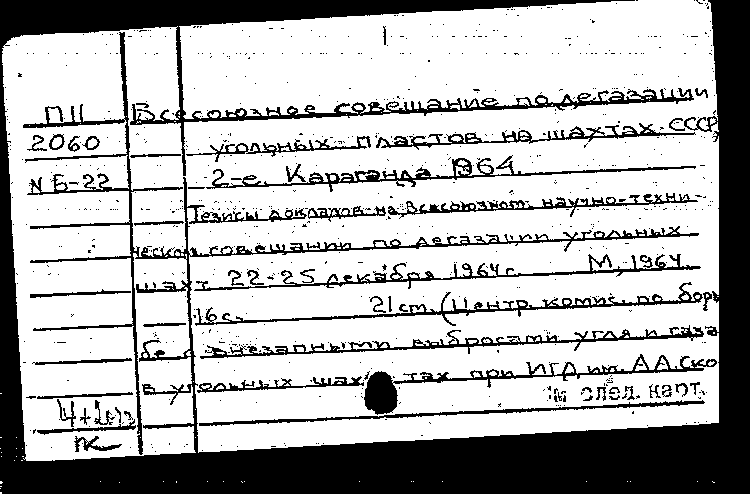 П11 Всесоюзное совещание по дегазации
2060 угольных пластов на шахтах СССР,
№ Б-22 2-е. Караганда 1964.
Тезисы докладов на Всесоюзном научно-техни-
ческом совещании по дегазации угольных
шахт 22-25 декабря 1964 г. М., 1964.
16 с. 21 cm. (Центр. комис. по борь
бе с внезапными выбросами угля и газа
в угольных шахтах при ИГД им. А.А. Ско
См след. карт.